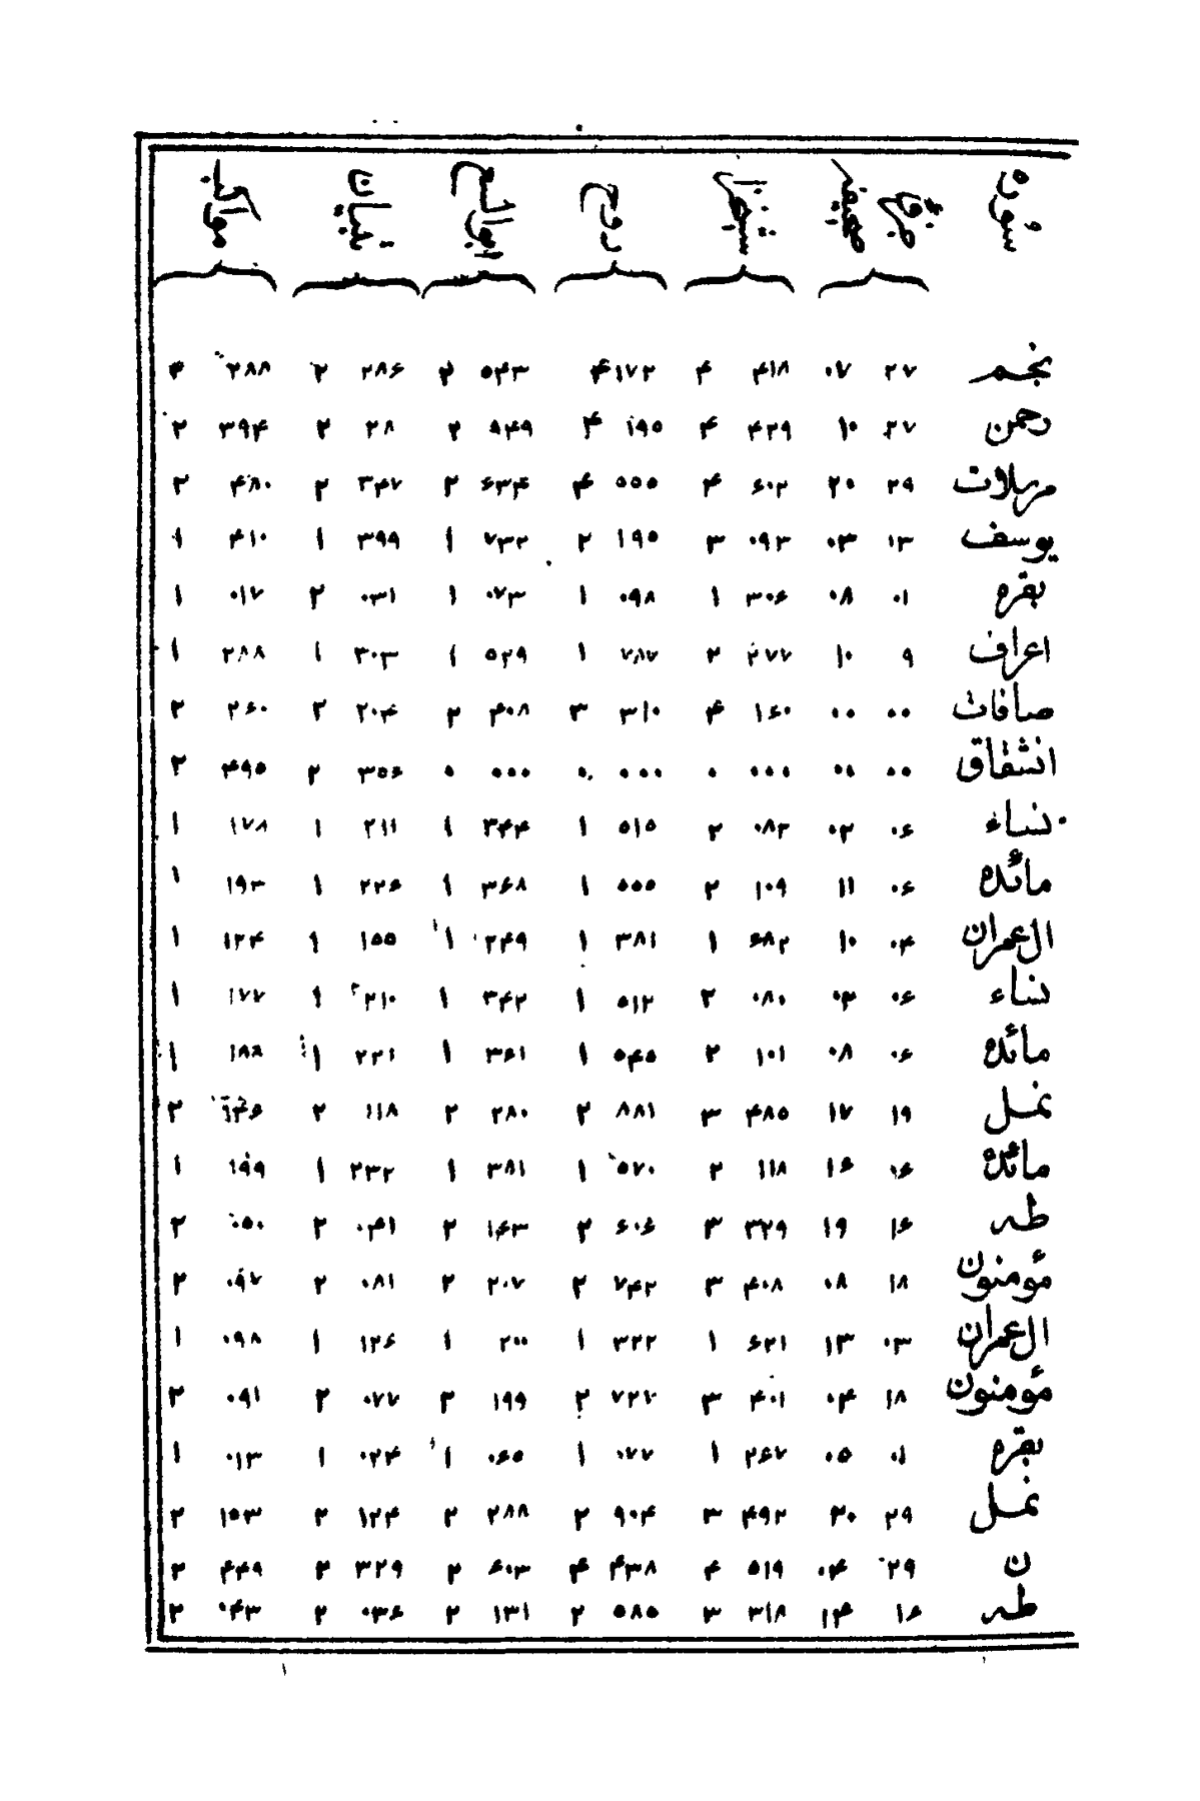 سوره صفحه شیخ روح تبیان مواکب
نجم ۲۷ ۰۷ ۴۱۸ ۴ ۱۷۲ ۴ ۵۴۳ ۲ ۲۸۶ ۲ ۲۸۸
رحمن ۲۷ ۱۰ ۴۲۹ ۴ ۱۹۵ ۴ ۲ ۲۸ ۲ ۳۹۴ ۲
۲۹ ۲۰ ۶۰۲ ۴ ۵۵۵ ۴ ۶۳۴ ۲ ۳۴۷ ۲ ۴۸۰ ۲
یوسف ۱۳ ۰۳ ۰۹۳ ۳ ۱۹۵ ۲ ۷۳۲ ۱ ۳۹۹ ۱ ۴۱۰ ۱
بقره ۰۱ ۰۸ ۳۰۶ ۱ ۰۹۸ ۱ ۰۷۳ ۱ ۰۳۱ ۲ ۰۱۷ ۱
اعراف ۹ ۱۰ ۲۷۷ ۲ ۷۸۷ ۱ ۵۲۹ ۱ ۳۰۳ ۱ ۲۸۸ ۱
صافات ۰۰ ۰۰ ۱۶۰ ۴ ۳۱۰ ۳ ۴۰۸ ۲ ۲۰۴ ۲ ۲۶۰ ۲
انشقاق ۰۰ ۰۰ ۰۰۰ ۰ ۰۰۰ ۰ ۰۰۰ ۰ ۳۵۶ ۲ ۴۹۵ ۲
نساء ۰۶ ۰۲ ۰۸۳ ۲ ۵۱۵ ۱ ۳۴۴ ۱ ۲۱۱ ۱ ۱۷۸ ۱
مائده ۰۶ ۱۱ ۱۰۹ ۲ ۵۵۵ ۱ ۳۶۸ ۱ ۲۲۶ ۱ ۱۹۳ ۱
ال عمران ۰۴ ۱۰ ۶۸۲ ۱ ۳۸۱ ۱ ۲۴۹ ۱ ۱۵۵ ۱ ۱۲۴ ۱
نساء ۰۶ ۰۲ ۰۸۰ ۲ ۵۱۲ ۱ ۳۴۲ ۱ ۲۱۰ ۱ ۱۷۷ ۱
مائده ۰۶ ۰۸ ۱۰۱ ۲ ۵۴۵ ۱ ۳۶۱ ۱ ۲۲۱ ۱ ۱۸۸ ۱
نمل ۱۹ ۱۷ ۴۸۵ ۳ ۸۸۱ ۲ ۲۸۰ ۲ ۱۱۸ ۲ ۱۴۶ ۲
مائده ۰۶ ۱۶ ۱۱۸ ۲ ۵۷۰ ۱ ۳۸۱ ۱ ۲۳۲ ۱ ۱۹۹ ۱
طه ۱۶ ۱۹ ۳۲۹ ۳ ۶۰۶ ۲ ۱۴۳ ۲ ۰۴۱ ۲ ۰۵۰ ۲
مؤمنون ۱۸ ۰۸ ۴۰۸ ۳ ۷۴۲ ۲ ۲۰۷ ۲ ۰۸۱ ۲ ۰۹۷ ۲
ال عمران ۰۳ ۱۳ ۶۲۱ ۱ ۳۲۲ ۱ ۲۰۰ ۱ ۱۲۶ ۱ ۰۹۸ ۱
مؤمنون ۱۸ ۰۴ ۴۰۱ ۳ ۷۲۷ ۲ ۱۹۹ ۲ ۰۷۷ ۲ ۰۹۱ ۲
بقره ۰۱ ۰۵ ۲۶۷ ۱ ۰۷۷ ۱ ۰۶۵ ۱ ۰۲۴ ۱ ۰۱۳ ۱
نمل ۲۹ ۲۰ ۴۹۲ ۳ ۹۰۴ ۲ ۲۸۸ ۲ ۱۲۴ ۲ ۱۵۳ ۲
ن ۲۹ ۰۴ ۵۱۹ ۴ ۴۳۸ ۴ ۶۰۳ ۲ ۳۲۹ ۲ ۴۴۹ ۲
طه ۱۶ ۱۴ ۳۱۸ ۳ ۵۸۵ ۲ ۱۳۱ ۲ ۰۳۶ ۲ ۰۴۳ ۲